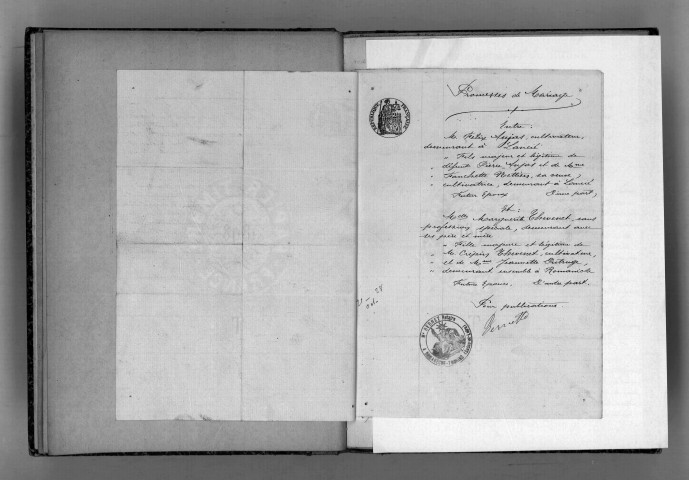 Promesses de Mariage
Entre :
M. Félix Aujas, cultivateur,
demeurant à Lancié
" Fils majeur et légitime de
" défunt Pierre Aujas et de Mme
" Fanchette sa veuve,
" cultivatrice, demeurant à Lancié
Futur Epoux D'une part,
Et :
Mlle Marguerite Thevenet, sans
profession spéciale, demeurant avec
ses père et mère
" Fille majeure et légitime de
" M. Crépin Thevenet, cultivateur,
" et de Mme Jeannette
" demeurant ensemble à Romanèche
Future Epouse. D'autre part.
Pour publications